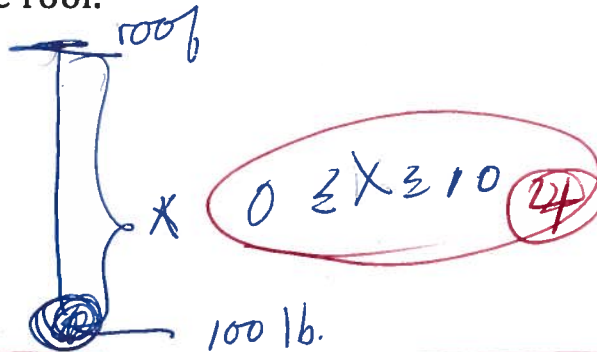 e roof.
roof
0 ≤ X ≤ 10 24
x
100 lb.